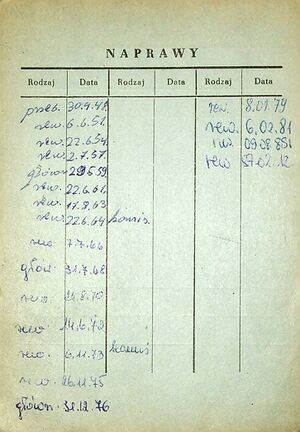 NAPRAWY
Rodzaj Data Rodzaj Data Rodzaj Data
przeb. 30.4.48. rew. 8.01.79
rew. 6.6.51. rew. 6.02.81
rew. 22.6.54.
rew. 2.7.57. rew
główn 29559
rew. 22.6.61.
rew. 17.8.63
rew. 22.6.64
rew 7.7.66
główn. 31.7.68
rew. .8.70
rew 14.6.72
rew. 6.11.73
rew. 26.11.75
główn. 31.12.76